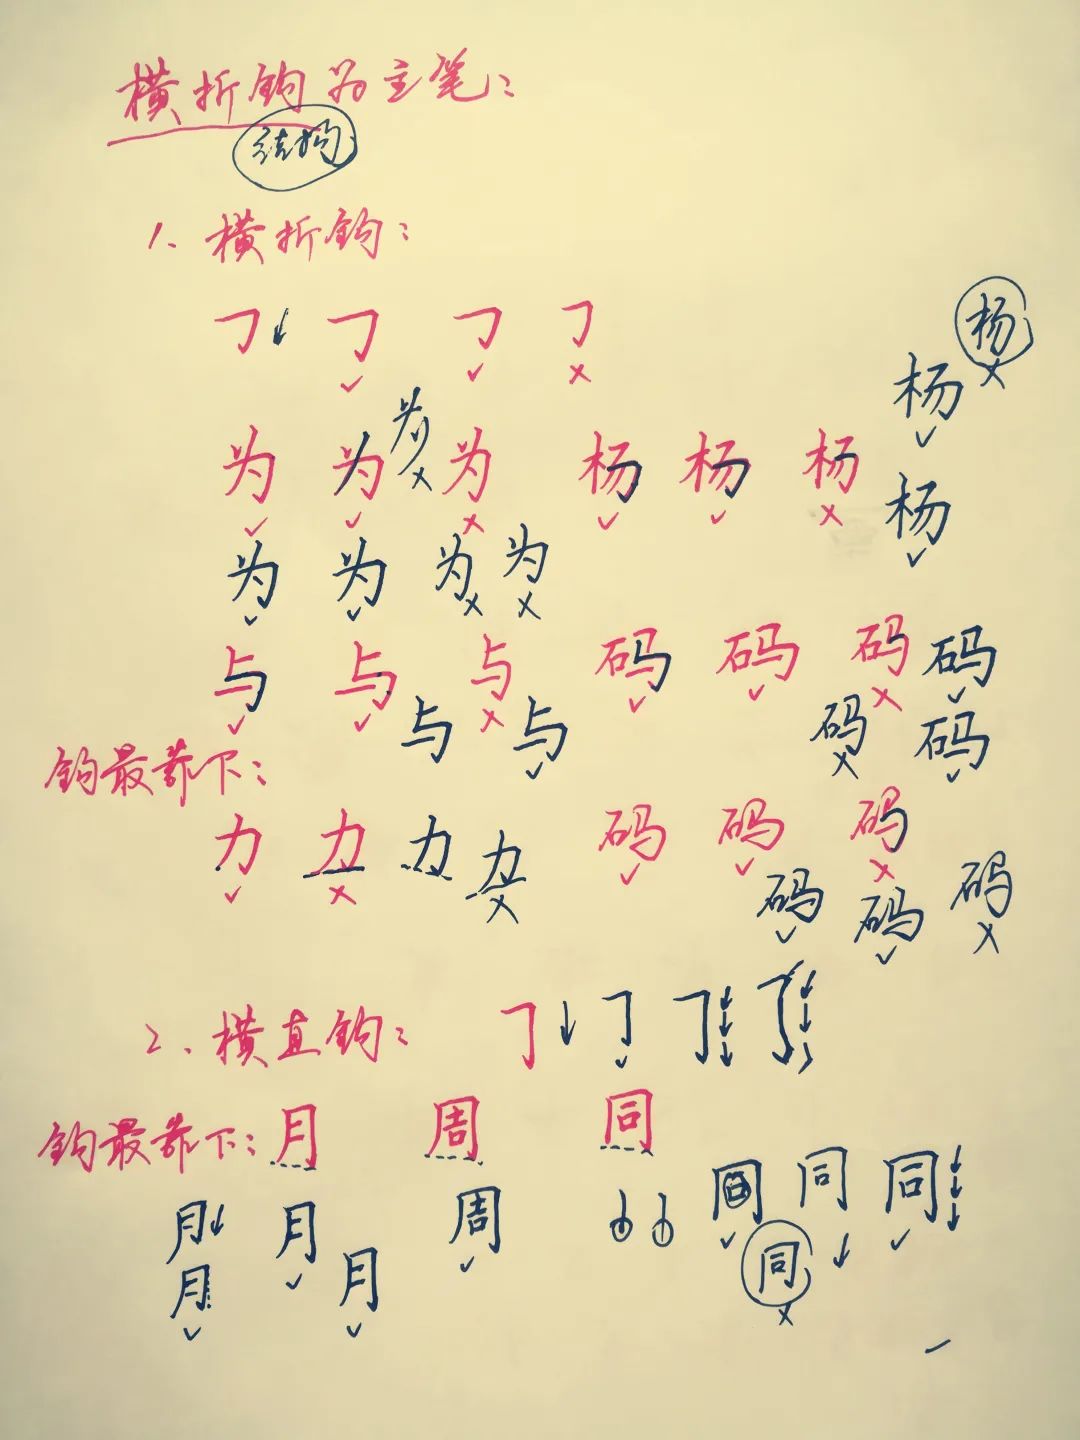 横折钩为主笔：
结构
1、横折钩：
㇆ ㇆ ✓ ㇆ ✓ ㇆ ×
杨 ×
杨 ✓
为 ✓ 为 ✓ 为 × 为 × 杨 ✓ 杨 ✓ 杨 ×
杨 ✓
为 ✓ 为 ✓ 为 × 为 ×
与 ✓ 与 ✓ 与 × 码 ✓ 码 ✓ 码 × 码 ✓
与 与 ✓ 码 × 码 ✓
钩最靠下：
力 ✓ 力 × 力 力 × 码 ✓ 码 ✓ 码 ×
码 ✓ 码 ✓ 码 ×
2、横直钩： ㇆ ㇆ ✓ ㇆ ㇆
钩最靠下： 月 周 同
月 月 ✓ 周 ✓ 同 ✓ 同 同 ✓
月 ✓ 月 ✓ 同 ×